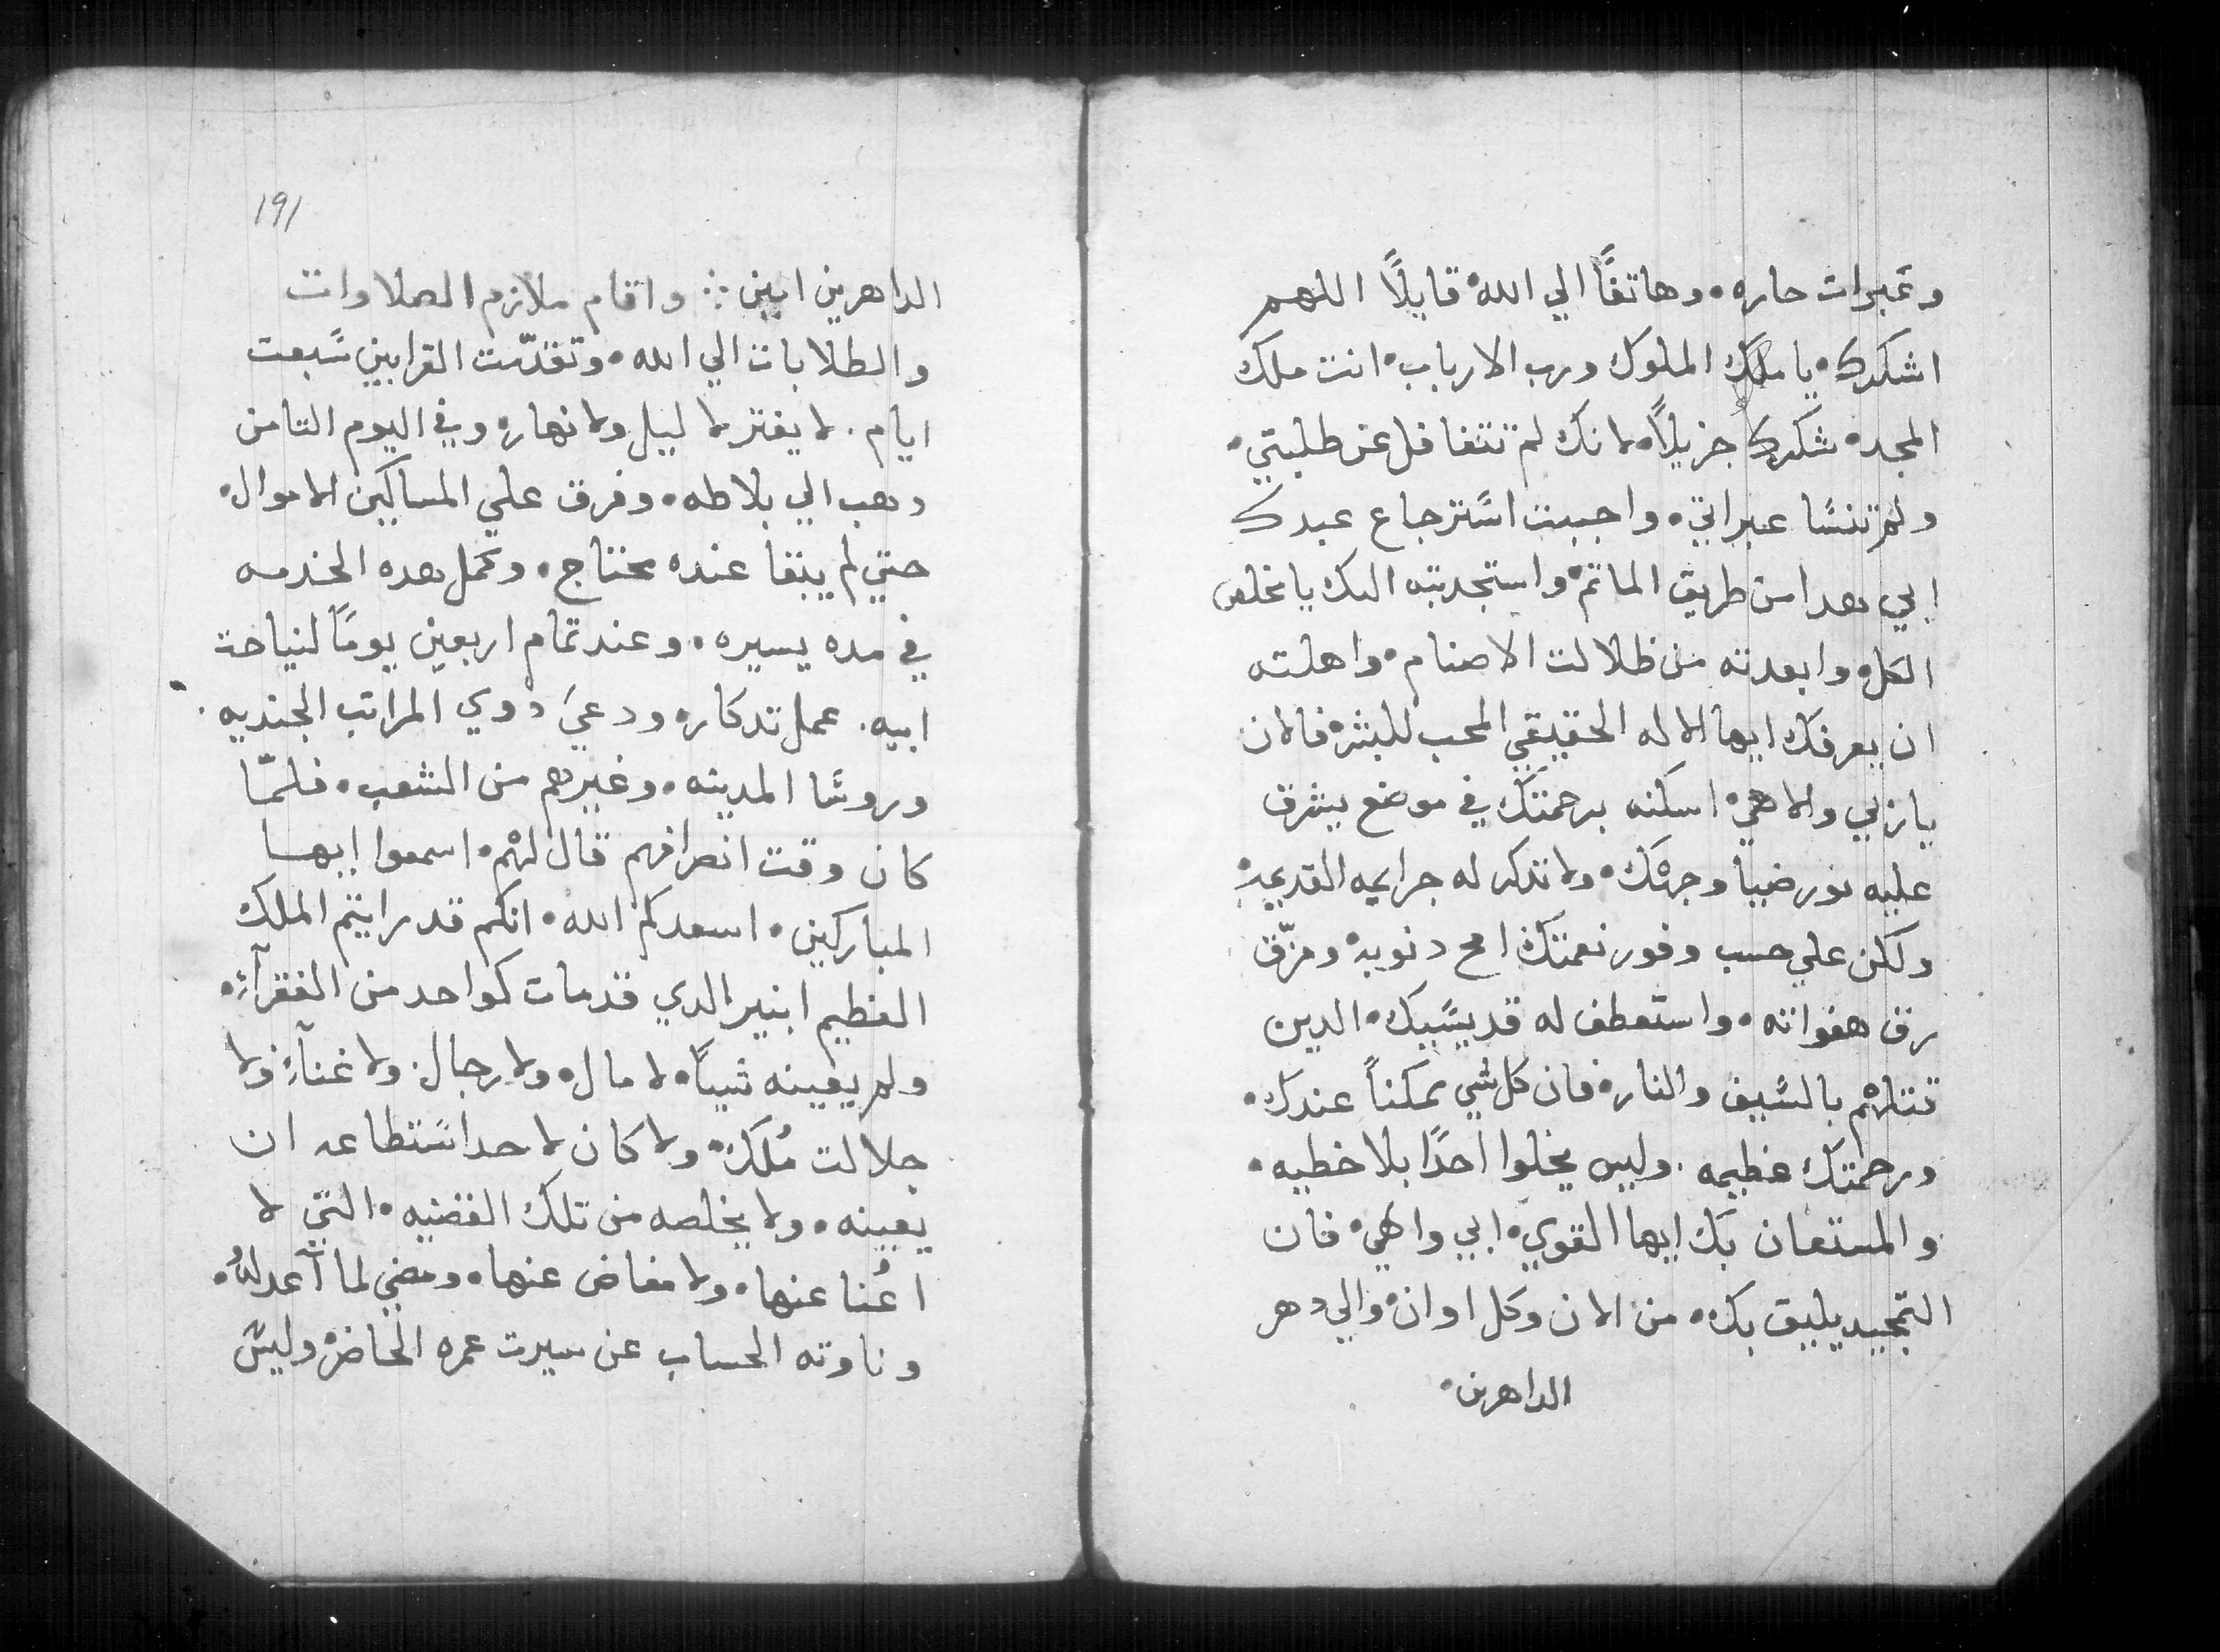 وعبرات حاره، وهاتفًا الي الله قايلًا اللهم
اشكرك، يا ملك الملوك ورب الارباب، انت ملك
المجد، شكرك جزيلًا، لانك لم تتغافل عن طلبتي،
ولم تنسا عبراتي، واجبت استرجاع عبدك
ابي هدا من طريق الماتم، واستجدبته اليك يا مخلص
الكل، وابعدته من ظلالت الاصنام، واهلته
ان يعرفك ايها الاله الحقيقي المحب للبشر، فالان
يا ربي والاهي، اسكنه برحمتك في موضع يشرق
عليه نور ضيا وجهك، ولا تدكر له جرايمه القديمه
ولكن علي حسب وفور نعمتك امح دنوبه ومزّق
رق هفواته، واستعطف له قديسيك، الدين
قتلهم بالسيف والنار، فان كل شي ممكنًا عندك،
ورحمتك عظيمه، وليس يخلوا احدًا بلا خطيه،
والمستعان بك ايها القوي، ابي والهي، فان
التمجيد يليق بك، من الان وكل اوان، والي دهر
الداهرين،
191
الداهرين امين ⁘ واقام ملازم الصلاوات
والطلابات الي الله، وتقدّمت القرابين سبعت
ايام. لا يفتر لا ليل ولا نهار، وفي اليوم التامن
دهب الي بلاطه، وفرق علي المساكين الاموال،
حتي لم يبقا عنده محتاج، وكمل هده الخدمه
في مده يسيره، وعند تمام اربعين يومًا لنياحة
ابيه. عمل تدكاره ودعي دوي المراتب الجنديه.
وروسا المدينه، وغيرهم من الشعب، فلمّا
كان وقت انصرافهم قال لهم، اسمعوا ايها
المباركين، اسعدكم الله، انكم قد رايتم الملك
العظيم ابنير الدي قد مات كواحد من الفقرآء،
ولم يعينه شيًا، لا مال، ولا رجال. ولا غنآء، ولا
جلالت مُلك، ولا كان لاحد استطاعه ان
يعينه، ولا يخلصه من تلك القضيه، التي لا
اعُنا عنها، ولا مفاض عنها، ومضي لما آعد لهُ،
وناوته الحساب عن سيرت عمره الحاضر، وليس